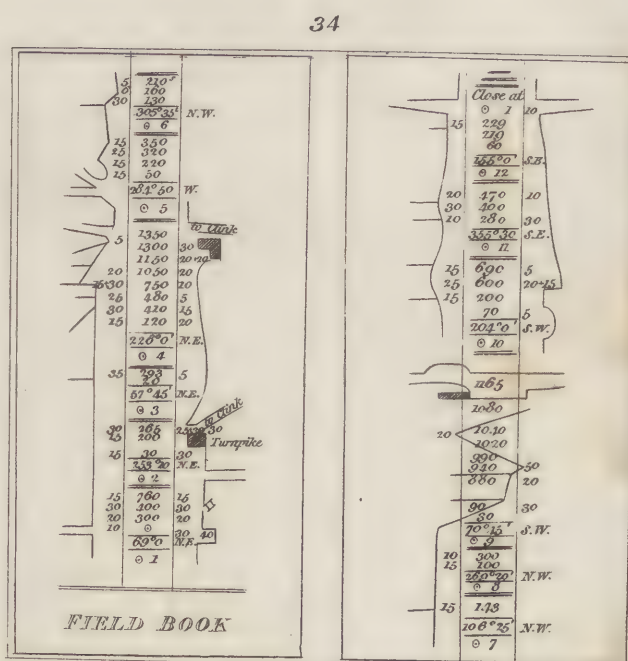 34
5 210
6 160
30 130
305° 35' N.W.
⊙ 6
15 350
25 320
15 220
15 50
284° 50 W.
⊙ 5
to Clink
1350
5 1300 30
1150 20 20
20 1050 20
15·30 750 10
25 480 5
30 410 15
15 120 20
226° 0' N.E.
⊙ 4
35 293 5
20
57° 45' N.E.
⊙ 3
to Clink
30 265 25 20 30
15 200 Turnpike
15 30 30
253° 20 N.E.
⊙ 2
15 760 15
30 400 30
20 300 20
10 ⊙ 30 40
69° 0 N.E.
⊙ 1
FIELD BOOK
Close at
⊙ 1 10
15 229
219
60
155° 0' S.E.
⊙ 12
20 470 10
30 400
10 280 30
355° 30 S.E.
⊙ 11
15 690 5
25 600 20+15
15 200
70 5
204° 0' S.W.
⊙ 10
1165
1080
20 1040
1020
990
940 50
880 20
90 30
30
70° 15' S.W.
⊙ 9
10 300
15 100
269° 20' N.W.
⊙ 8
15 173
106° 25' N.W.
⊙ 7